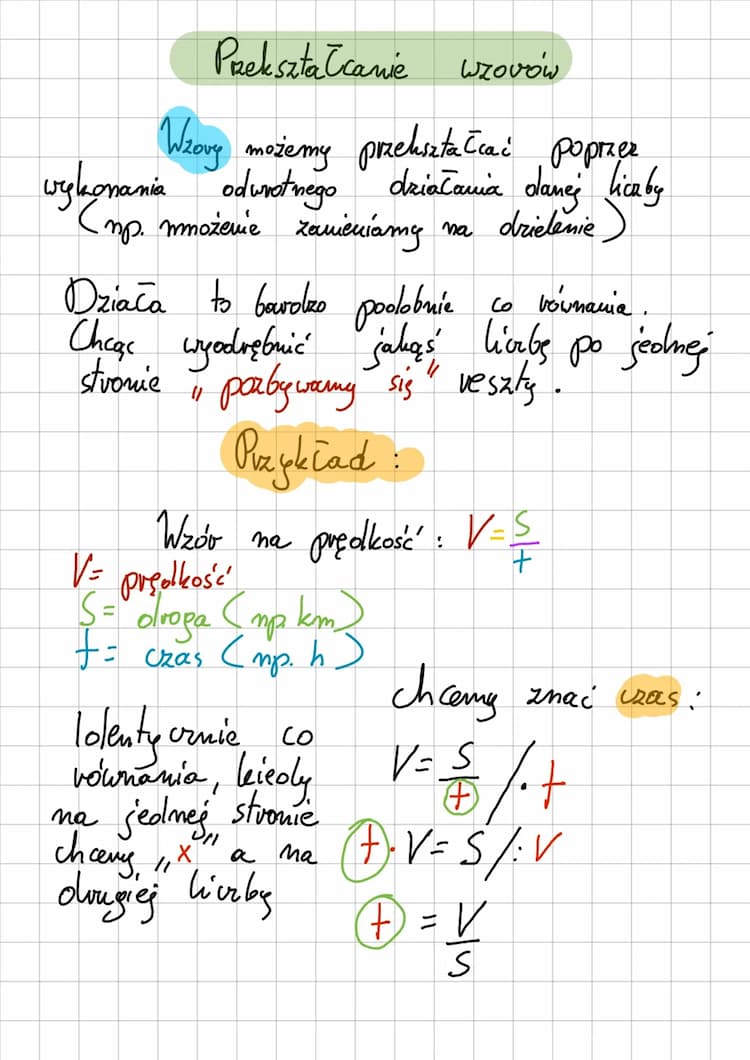 Przekształcanie wzorów
Wzory możemy przekształcać poprzez
wykonania odwrotnego działania danej liczby
(np. mnożenie zamieniamy na dzielenie)
Działa to bardzo podobnie co równania.
Chcąc wyodrębnić jakąś liczbę po jednej
stronie "pozbywamy się" reszty.
Przykład:
Wzór na prędkość: V = S/t
V = prędkość
S = droga (np km)
t = czas (np. h)
Identycznie co
równania, kiedy
na jednej stronie
chcemy „x" a na
drugiej liczby
chcemy znać czas:
V = S/t /·t
t·V = S /:V
t = V/S